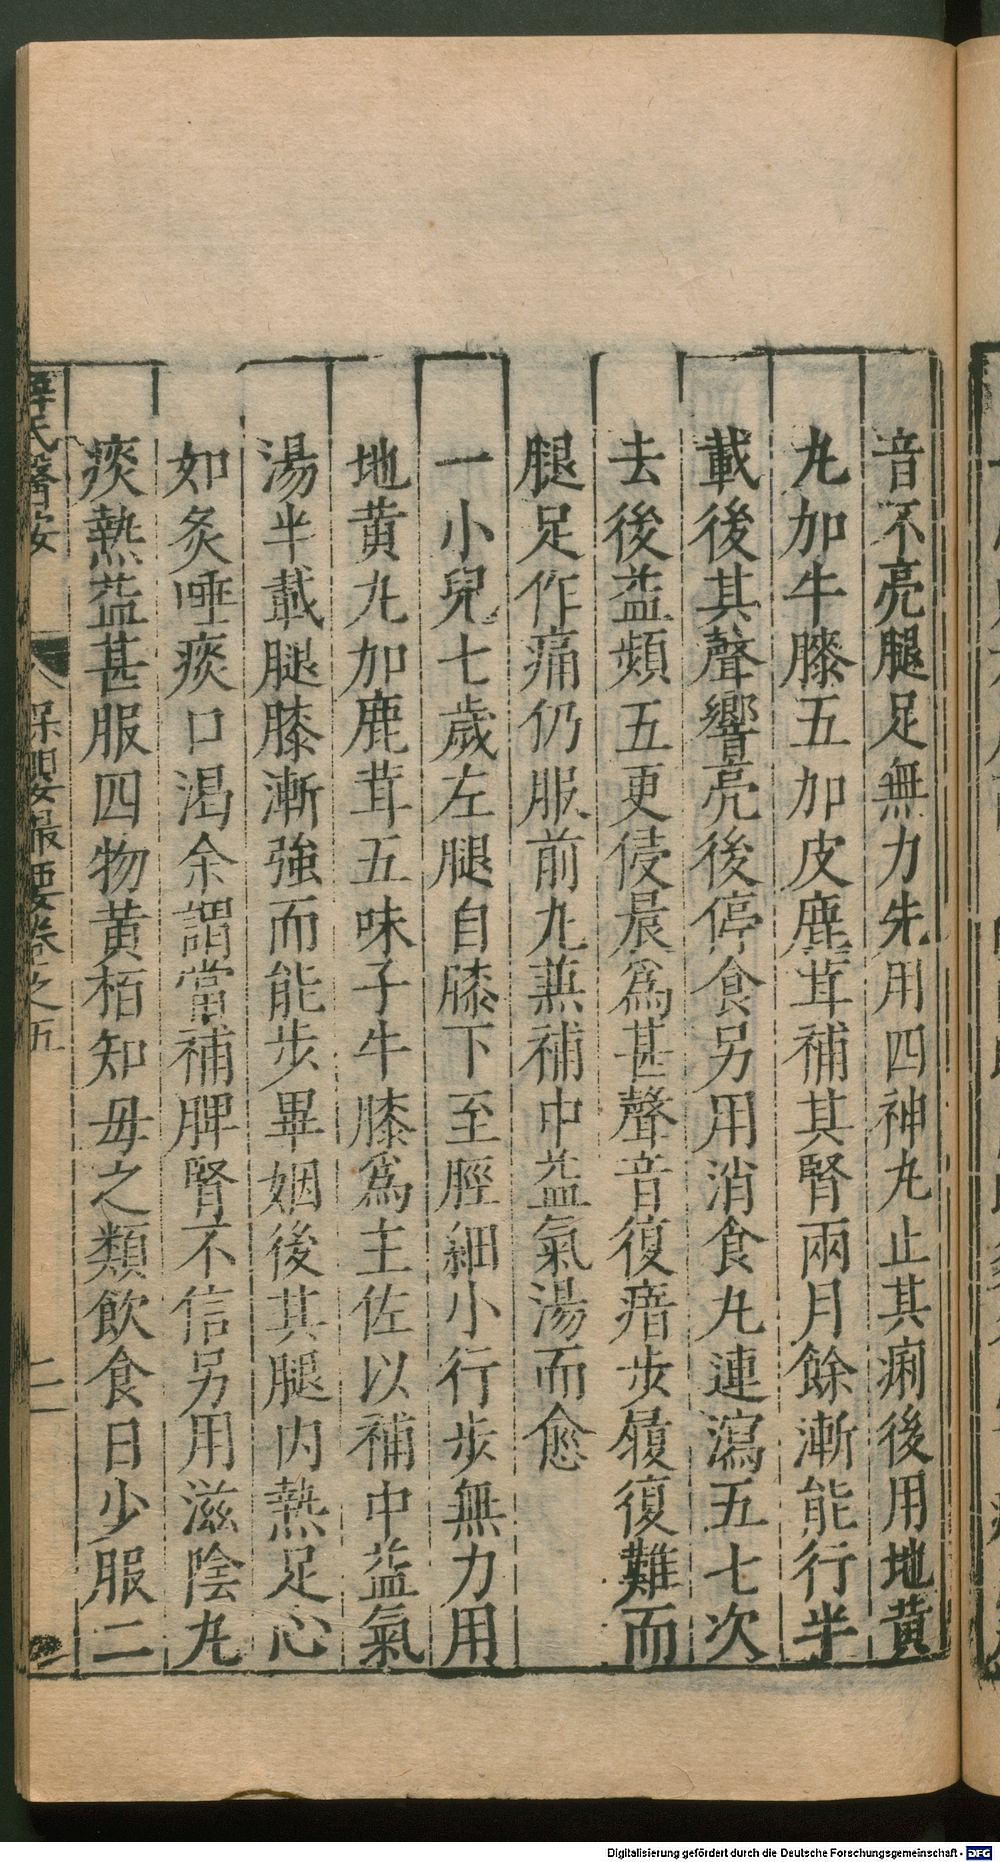 音不亮腿足無力先用四神丸止其痢後用地黃
丸加牛膝五加皮鹿茸補其腎兩月餘漸能行半
載後其聲響亮後停食另用消食丸連瀉五七次
去後益頻五更侵晨爲甚聲音復瘖步履復難而
腿足作痛仍服前丸兼補中益氣湯而愈
一小兒七歲左腿自膝下至脛細小行步無力用
地黃丸加鹿茸五味子牛膝爲主佐以補中益氣
湯半載腿膝漸強而能步畢姻後其腿內熱足心
如炙唾痰口渴余謂當補脾腎不信另用滋陰丸
痰熱益甚服四物黃栢知母之類飲食日少服二
薛氏醫按 保嬰最要卷之五 二
Digitalisierung gefördert durch die Deutsche Forschungsgemeinschaft - DFG